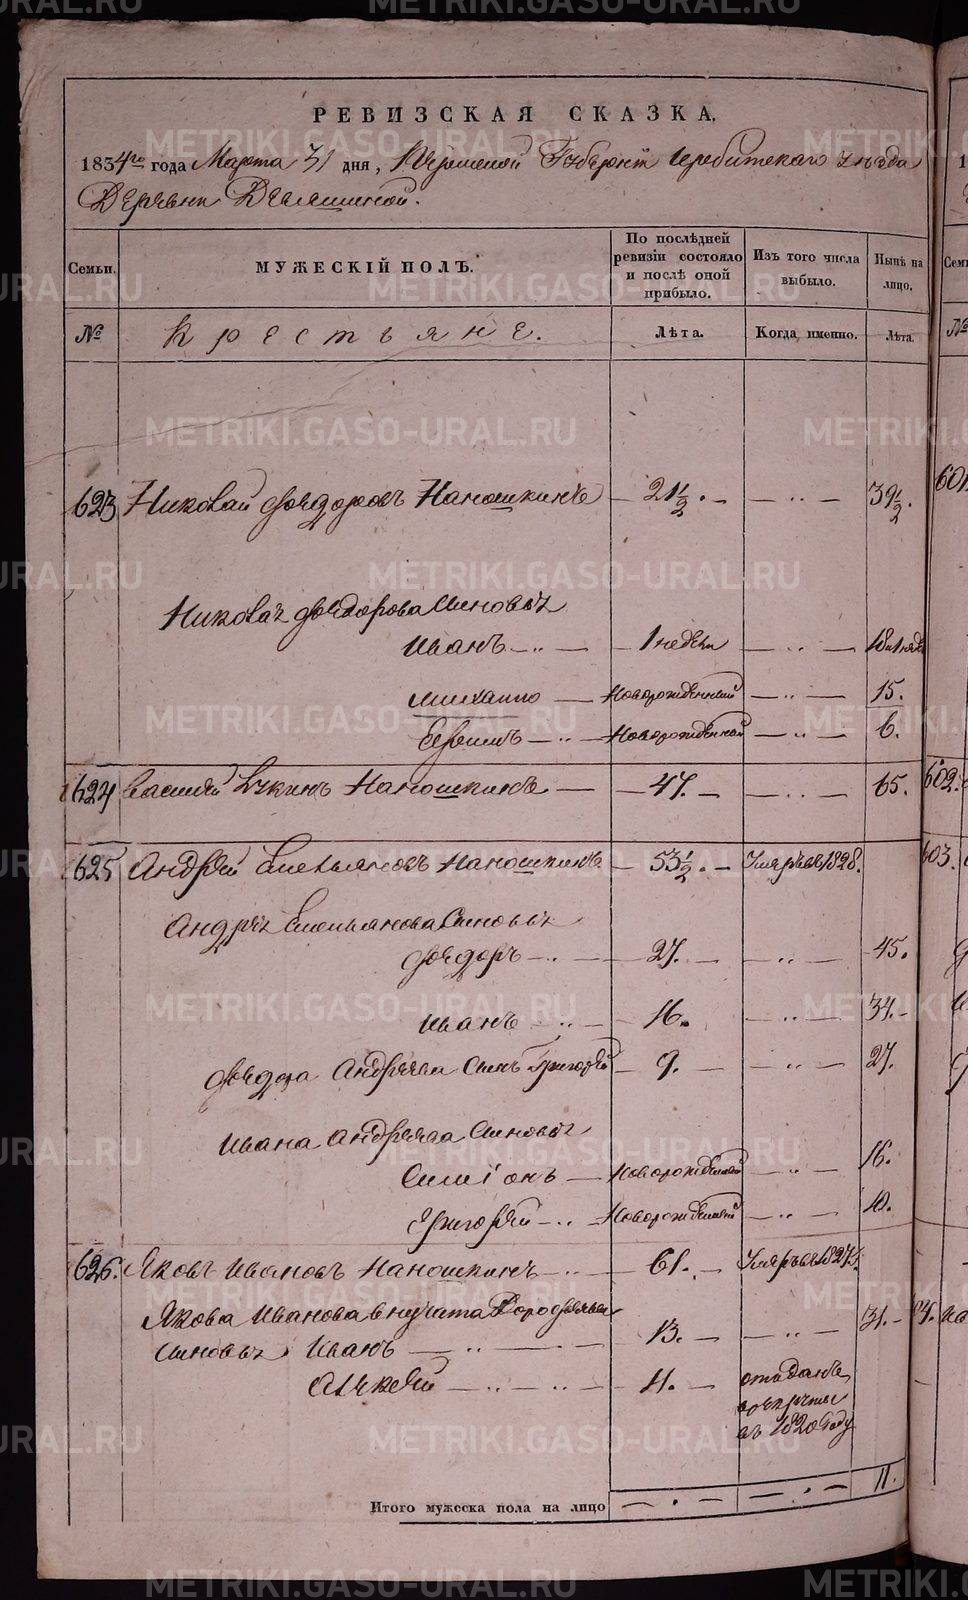 РЕВИЗСКАЯ СКАЗКА,
1834го года Марта 31 дня, Пермской Губернiи Ирбитскаго уѣзда
Деревни Девяшиной.
Семьи. МУЖЕСКІЙ ПОЛЪ. По послѣдней ревизіи состояло и послѣ оной прибыло. Изъ того числа выбыло. Нынѣ на лицо.
№ Крестьяне. Лѣта. Когда именно. Лѣта.
623 Николай Федоровъ Наношкинъ — 21½. — — „ — 39½.
Николая Федорова Сыновья
Иванъ — „ — 1 недели — „ — 18 и 1 неде
Михаило — Новорожденный — „ — 15.
Ефимъ — „ — Новорожденной — „ — 6.
624 Василей Лукинъ Наношкинъ — 47. — — „ — 65.
625 Андрей Емельяновъ Наношкинъ — 53½. — Умре въ 1828.
Андрея Емельянова Сыновья
Федоръ — „ — 27. — „ — 45.
Иванъ — „ — 16. — „ — 34.
Федора Андреева Сынъ Григорей — 9. — „ — 27.
Ивана Андреева Сыновья
Симіонъ — Новорожденной — „ — 16.
Григорей — „ — Новорожденной — „ — 10.
626. Яковъ Ивановъ Наношкинъ — „ — 61. — Умре въ 1827.
Якова Иванова внучата
Сыновья Иванъ — „ — 13. — — „ — 31.
Алексей — „ — „ — 11. — отъданъ
в рекруты
въ 1820 году
Итого мужеска пола на лицо — . — — . — 11.